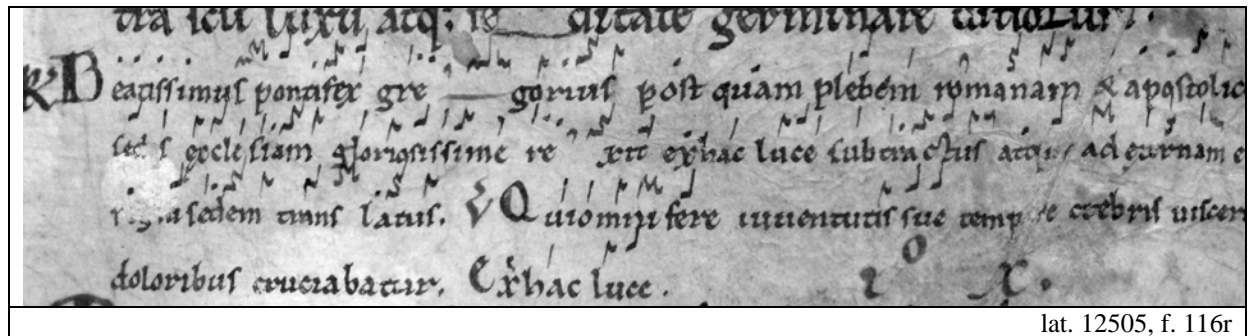 tra icu luxu atq; ditate germinare
℟ Beatissimus pontifex gre gorius post quam plebem romanam & apostolic
sedis ecclesiam gloriosissime re xit ex hac luce subtractus atq; ad eternam e
sedem trans latus. ℣ Qui omni fere iuuentutis sue temp re crebris uiscer
doloribus cruciabatur. Ex hac luce.
lat. 12505, f. 116r